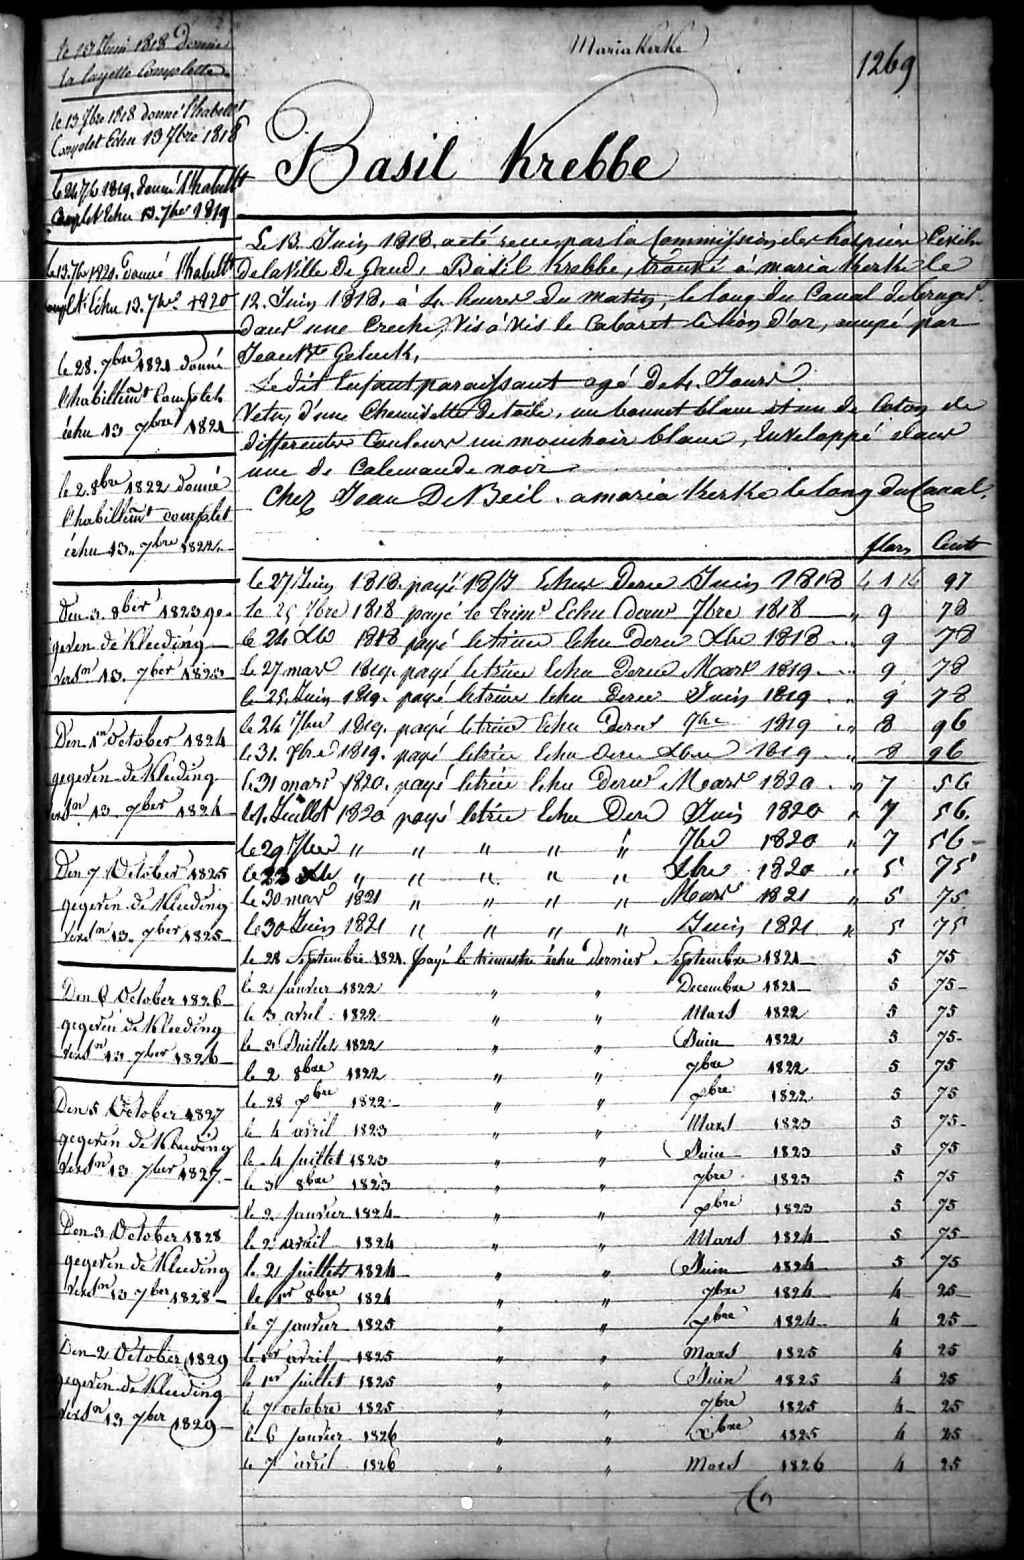 Mariakerke
1269
Basil Krebbe
le 10 Juin 1818 Donné
la layette Complette
le 13 7bre 1818 donné l'habillt
Complet Echu 13 7bre 1818
le 24 7b 1819. donné l'habillt
Complet Echu 13. 7bre 1819
le 13. 7bre 1820. Donné l'habillt
Complt Echu 13. 7bre 1820
le 28. 7bre 1821 donné
l'habillemt Complet
échu 13 7bre 1821
le 2. 8bre 1822 donné
l'habillemt complet
échu 13. 7bre 1822.
Den 3. 8ber 1823 ge-
geven de Kleeding
versn 13. 7ber 1823
Den 1n October 1824
gegeven de Kleeding
versn 13. 7ber 1824
Den 7 October 1825
gegeven de Kleeding
versn 13. 7ber 1825
Den 6 October 1826
gegeven de Kleeding
versn 13 7ber 1826
Den 5 October 1827
gegeven de Kleeding
versn 13 7ber 1827
Den 3 October 1828
gegeven de Kleeding
versn 13 7ber 1828
Den 2 October 1829
gegeven de Kleeding
versn 13 7ber 1829
Le 13. Juin 1818. a été recue par la Commission des hospices Civils
de la Ville de Gand, Basil Krebbe, trouvé à mariakerke le
12. Juin 1818. à 4. heures du matin, le long du Canal de Bruges
dans une Creche, vis à vis le Cabaret le lion d'or, occupé par
Jean Bte Geluck,
Le dit Enfant paraissant agé de 4. Jours.
Vetu, d'une Chemisette de toile, un bonnet blanc et un de Coton de
differentes Couleurs un mouchoir blanc, Enveloppé dans
une de Calemande noir
Chez Jean De Beil. a mariakerke le long du Canal.
flors Cents
le 27 Juin 1818. payé 18/J Echus Derer Juin 1818 1 97
le 25 7bre 1818 payé le trimr Echu Derer 7bre 1818 " 9 78
le 24 Xbr 1818 payé le trime Echu Derer Xbre 1818 " 9 78
le 27 mars 1819. payé le trime Echu Derer Mars 1819. " 9 78
le 25. Juin 1819. payé le trime Echu Derer Juin 1819 " 9 78
le 24 7bre 1819. payé le trime Echu Derer 7bre 1819 " 8 96
le 31. Xbre 1819. payé le trime Echu Derer Xbre 1819 " 8 96
le 31 mars 1820. payé le trime Echu Derer Mars 1820 " 7 56
le 1. Juillet 1820 payé le trime Echu Derer Juin 1820 " 7 56.
le 29 7bre " " " " " 7bre 1820 " 7 56
le 23 Xbr " " " " " Xbre 1820 " 5 75
le 30 mars 1821 " " " " Mars 1821 " 5 75
le 30 Juin 1821 " " " " Juin 1821 " 5 75
le 28 Septembre 1821. Payé le trimestre échu dernier Septembre 1821 5 75
le 2 Janvier 1822 " " Decembre 1821 5 75
le 3 avril 1822 " " Mars 1822 5 75
le 3 Juillet 1822 " " Juin 1822 5 75
le 2 8bre 1822 " " 7bre 1822 5 75
le 28 Xbre 1822 " " Xbre 1822 5 75
le 4 avril 1823 " " Mars 1823 5 75
le 4 Juillet 1823 " " Juin 1823 5 75
le 3 8bre 1823 " " 7bre 1823 5 75
le 2 Janvier 1824 " " Xbre 1823 5 75
le 2 avril 1824 " " Mars 1824 5 75
le 2 Juillet 1824 " " Juin 1824 5 75
le 1er 8bre 1824 " " 7bre 1824 4 25
le 7 Janvier 1825 " " Xbre 1824 4 25
le 1er avril 1825 " " Mars 1825 4 25
le 1er Juillet 1825 " " Juin 1825 4 25
le 7 octobre 1825 " " 7bre 1825 4 25
le 6 Janvier 1826 " " Xbre 1825 4 25
le 7 avril 1826 " " Mars 1826 4 25